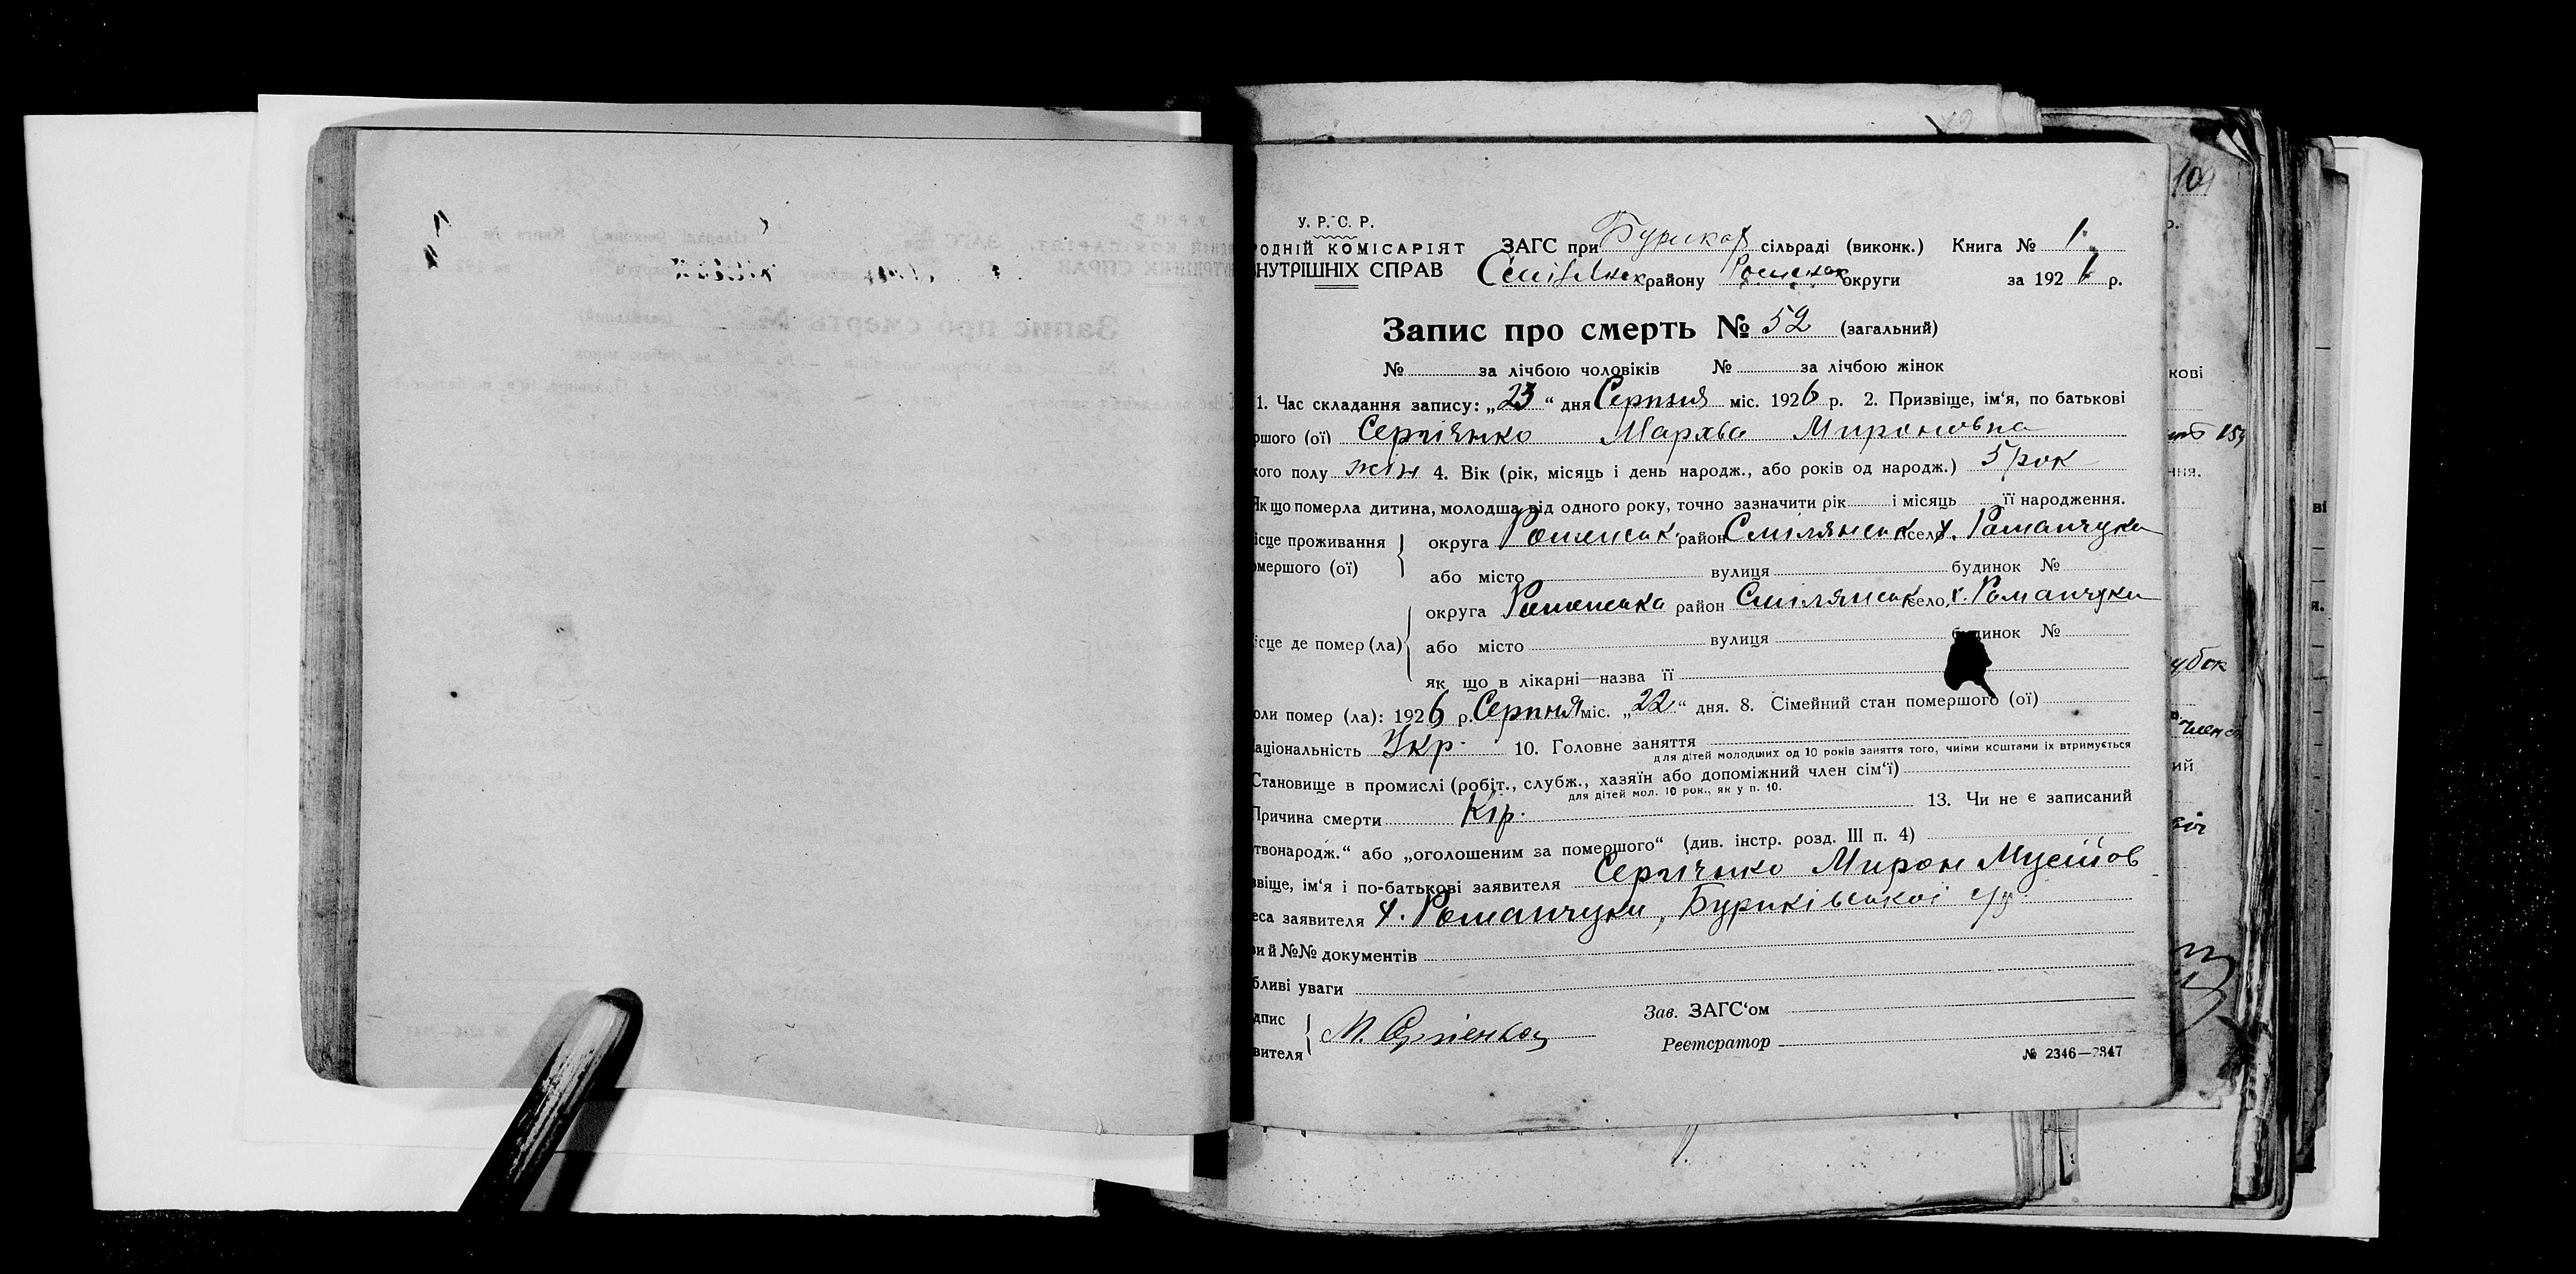 У. Р. С. Р.
РОДНІЙ КОМІСАРІЯТ
ВНУТРІШНІХ СПРАВ
ЗАГС при Бурикów сільраді (виконк.) Книга № 1
району Роменськ округи за 1926 р.
Запис про смерть № 52 (загальний)
№ за лічбою чоловіків № за лічбою жінок
1. Час складання запису: „23“ дня Серпня міс. 1926 р. 2. Призвіще, ім‘я, по батькові
ршого (ої) Сергіенко Марфа Мироновна
кого полу жін 4. Вік (рік, місяць і день народж., або років од народж.) 5 рок
Як що померла дитина, молодша від одного року, точно зазначити рік і місяць її народження.
ісце проживання
омершого (ої)
округа Роменськ район Смілянськ село х. Романчуки
або місто вулиця будинок №
ісце де помер (ла)
округа Роменська район Смілянськ село х. Романчуки
або місто вулиця будинок №
як що в лікарні—назва її
оли помер (ла): 1926 р. Серпня міс. „22“ дня. 8. Сімейний стан помершого (ої)
аціональність Укр. 10. Головне заняття
для дітей молодших од 10 років заняття того, чиїми коштами їх втримується
Становище в промислі (робіт., служб., хазяїн або допоміжний член сім‘ї)
для дітей мол. 10 рок., як у п. 10.
Причина смерти Кір. 13. Чи не є записаний
твонародж.“ або „оголошеним за помершого“ (див. інстр. розд. III п. 4)
звіще, ім‘я і по-батькові заявителя Сергіенко Мирон Мусійов
еса заявителя х. Романчуки, Буриківської с/р
ви й №№ документів
бливі уваги
дпис
вителя
М. Сергіенко
Зав. ЗАГС‘ом
Реєстратор
№ 2346—2347
109
кові
ння.
убок
член
ий
ві
я.